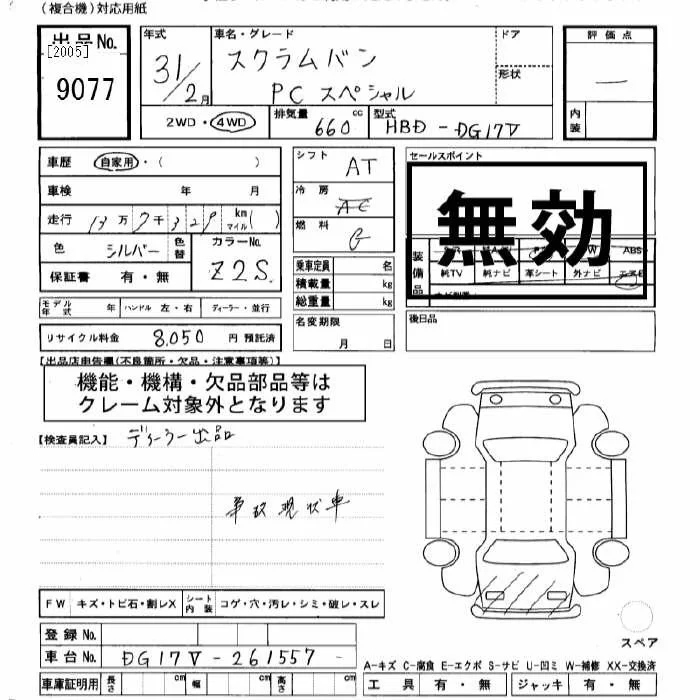 (複合機)対応用紙
出品No.
[2005]
9077
年式
31/2月
車名・グレード
スクラムバン
PC スペシャル
ドア
形状
評価点
内装
2WD・4WD
排気量
660cc
型式
HBD-DG17V
車歴
自家用・( )
車検 年 月
走行 13万7千329km(マイル)
色
シルバー
色替
カラーNo.
Z2S
保証書 有・無
シフト
AT
冷房
AC
燃料
G
乗車定員 名
積載量 kg
総重量 kg
名変期限
月 日
セールスポイント
無効
装備品
ABS
純TV 純ナビ 革シート 外ナビ エアB
後日品
モデル年式 年 ハンドル 左・右 ディーラー・並行
リサイクル料金 8,050円 預託済
【出品店申告欄(不良箇所・欠品・注意事項等)】
機能・機構・欠品部品等は
クレーム対象外となります
【検査員記入】
ディーラー出品
事故現状車
FW キズ・トビ石・割レX
シート内装 コゲ・穴・汚レ・シミ・破レ・スレ
登録No.
車台No. DG17V-261557
車庫証明用 長さ cm 幅 cm 高さ cm
スペア
A-キズ C-腐食 E-エクボ S-サビ U-凹ミ W-補修 XX-交換済
工具 有・無 ジャッキ 有・無